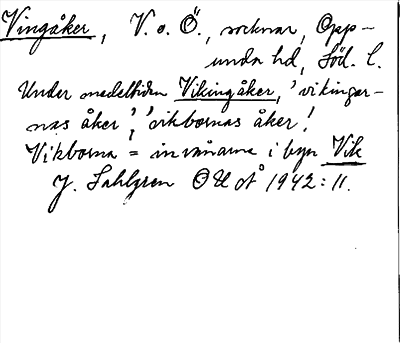 Vingåker, V. o. Ö., socknar, Opp-
unda hd, Söd. l.
Under medeltiden Vikingåker, 'vikingar-
nas åker', 'vikbornas åker'
Vikborna = invånarna i byn Vik
J. Sahlgren OUÅ 1942:11.